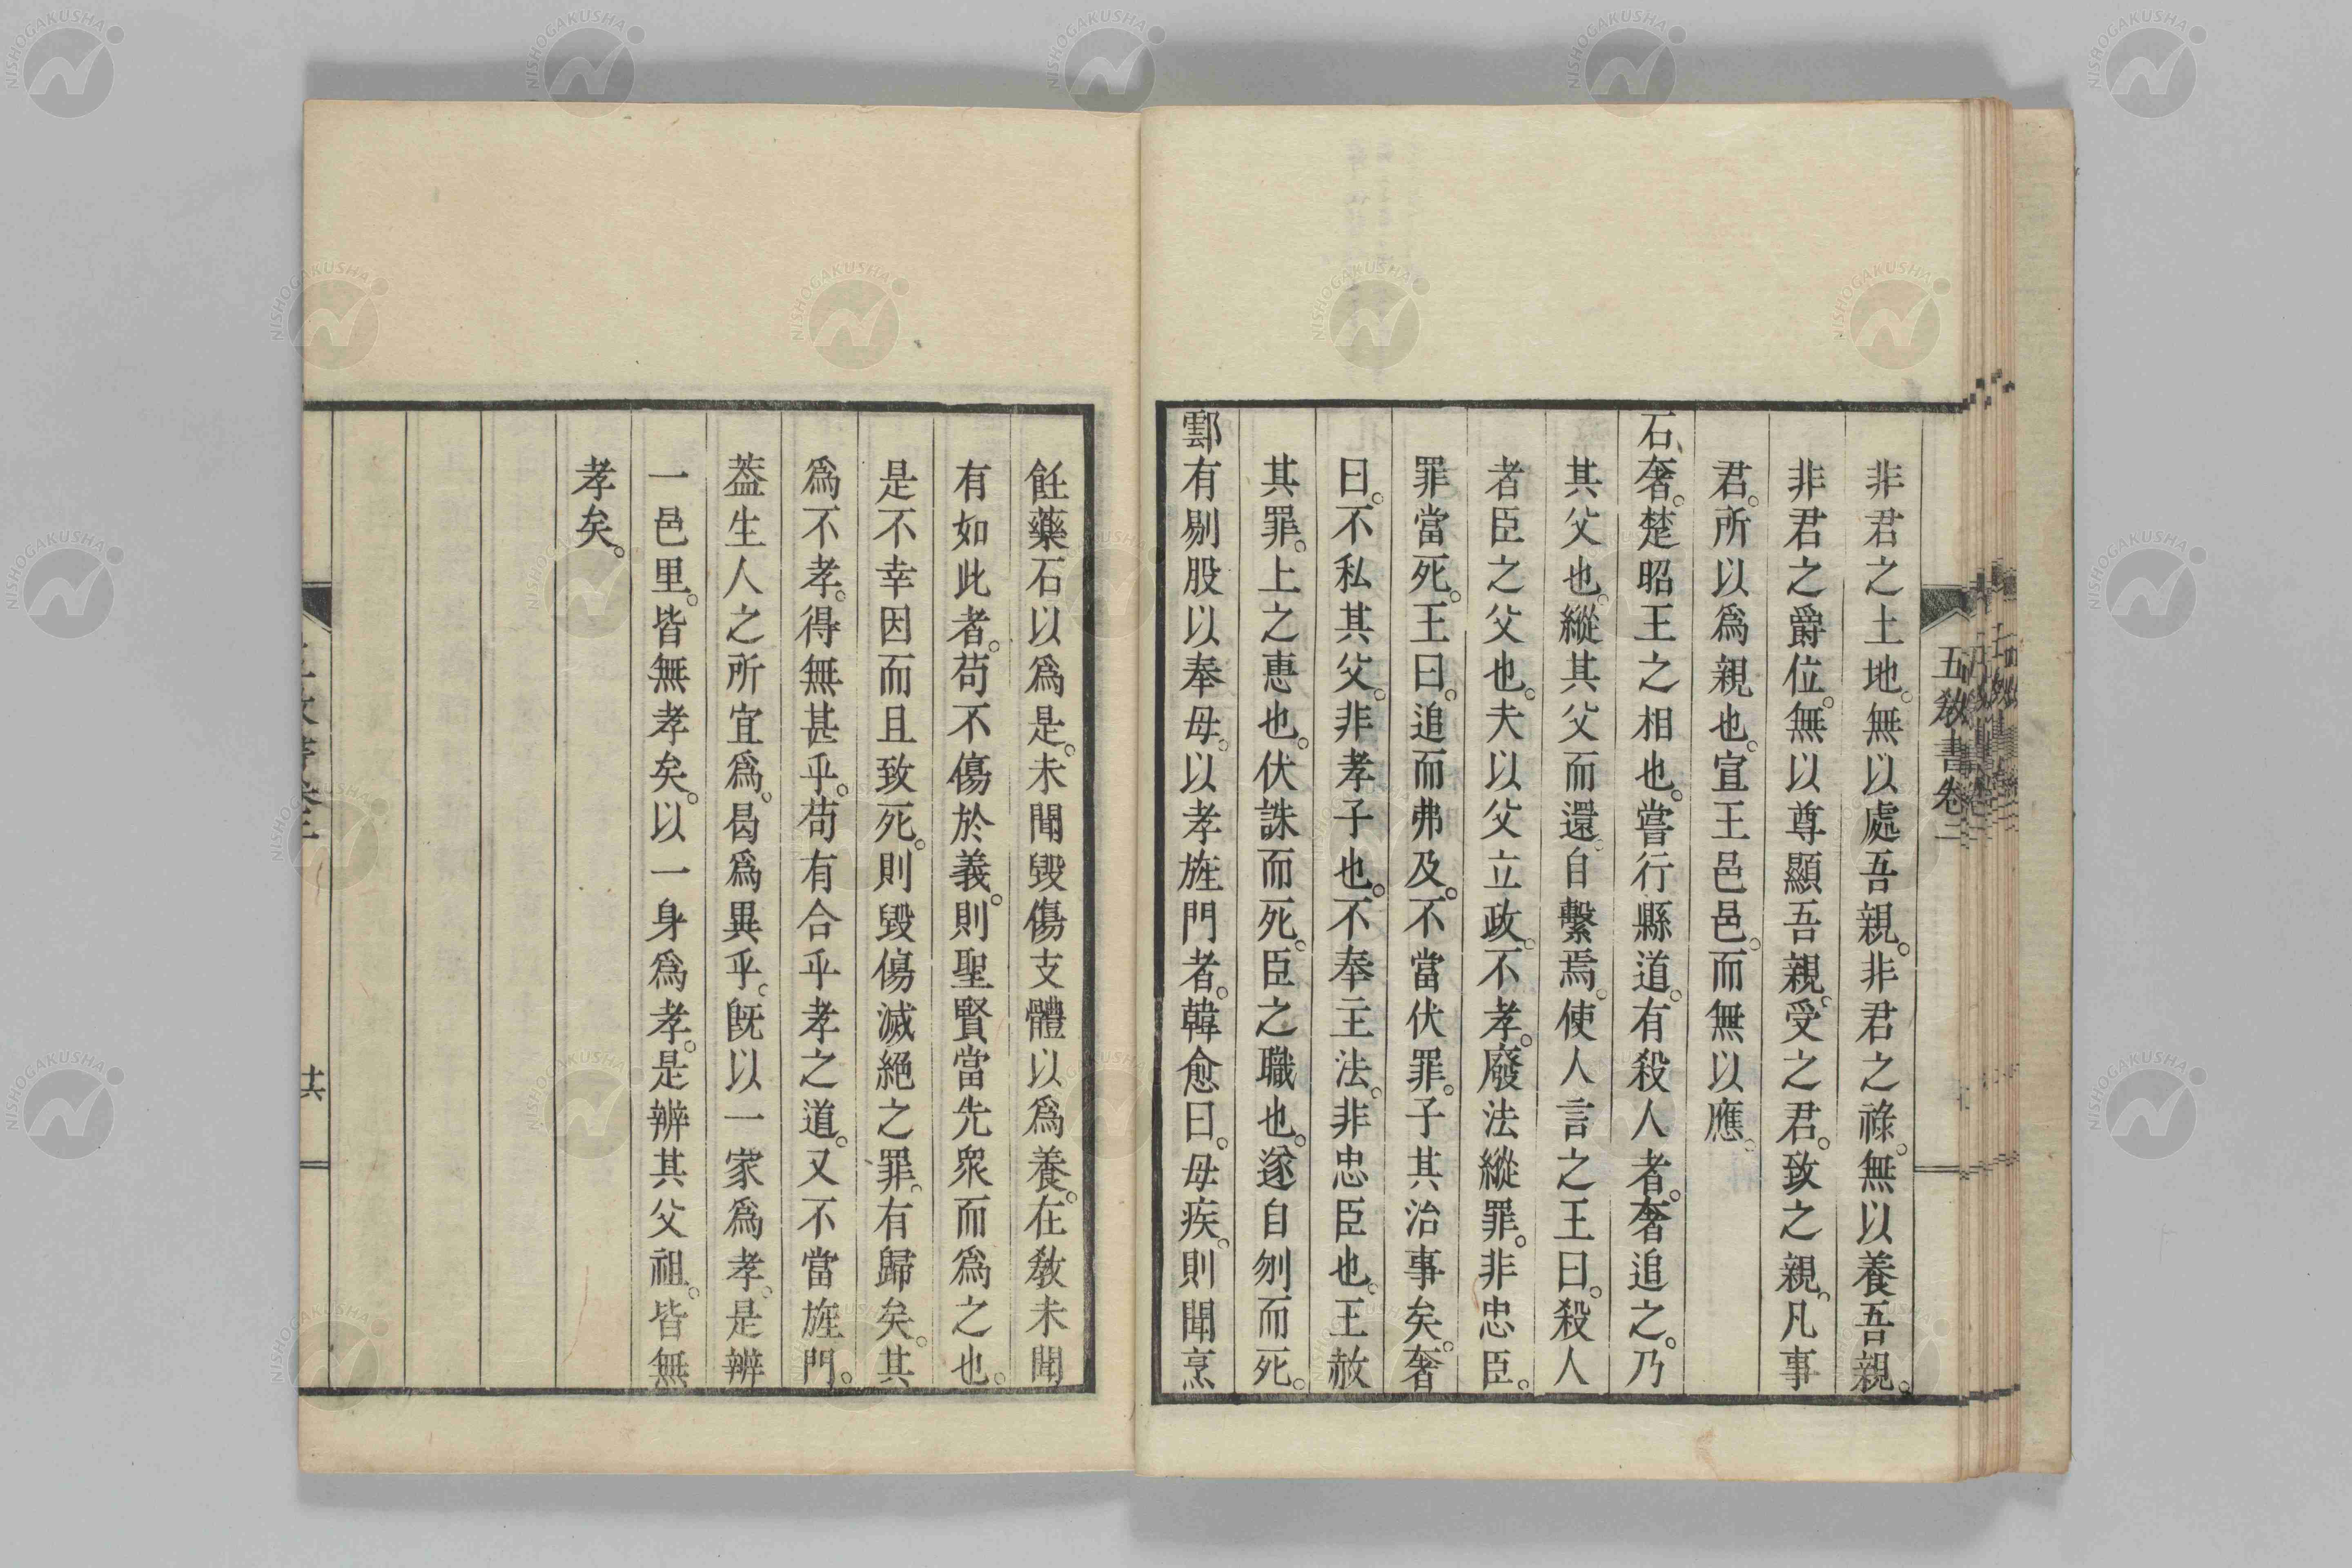 五敎書卷二
非君之土地。無以處吾親。非君之祿。無以養吾親。
非君之爵位。無以尊顯吾親。受之君。致之親。凡事
君。所以爲親也。宣王邑邑。而無以應。
石、奢。楚昭王之相也。嘗行縣道。有殺人者。奢追之。乃
其父也。縱其父而還。自繫焉。使人言之王曰。殺人
者臣之父也。夫以父立政。不孝。廢法縱罪。非忠臣。
罪當死。王曰。追而弗及。不當伏罪。子其治事矣。奢
曰。不私其父。非孝子也。不奉主法。非忠臣也。王赦
其罪。上之惠也。伏誅而死。臣之職也。遂自刎而死。
鄠有剔股以奉母。以孝旌門者。韓愈曰。母疾。則聞烹
飪藥石以爲是。未聞毀傷支體以爲養。在敎未聞
有如此者。苟不傷於義。則聖賢當先衆而爲之也。
是不幸因而且致死。則毀傷滅絕之罪。有歸矣。其
爲不孝。得無甚乎。苟有合乎孝之道。又不當旌門。
葢生人之所宜爲。曷爲異乎。旣以一家爲孝。是辨
一邑里。皆無孝矣。以一身爲孝。是辨其父祖。皆無
孝矣。